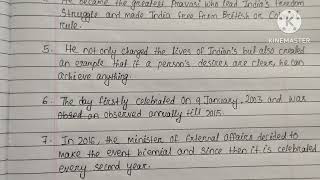 He became the greatest Pravasi who lead India's Freedom
Struggle and made India free from British or Col
Rule.
KINEMASTER
5. He not only changed the lives of Indian's but also created
an example that if a person's desires are clear, he can
achieve anything.
6. The day firstly celebrated on 9 January, 2003 and was
observed annually till 2015.
7. In 2016, the minister of External Affairs decided to
make the event biennial and since then it is celebrated
every second year.